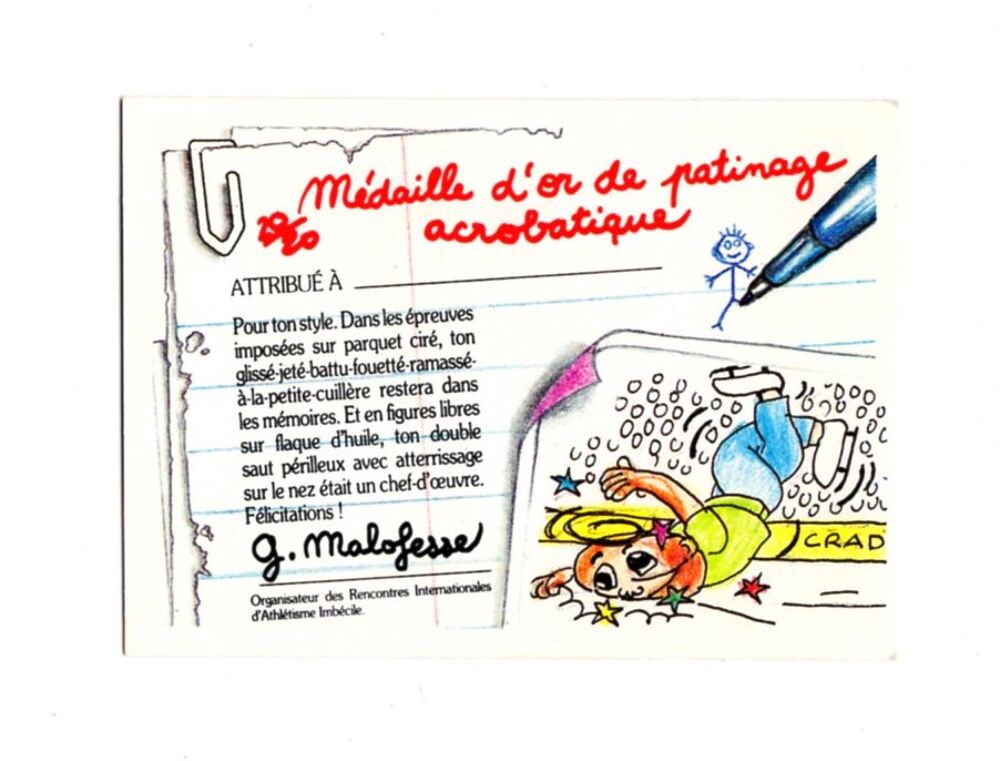 Médaille d'or de patinage
acrobatique
20/20
ATTRIBUÉ À
Pour ton style. Dans les épreuves
imposées sur parquet ciré, ton
glissé-jeté-battu-fouetté-ramassé-
à-la-petite-cuillère restera dans
les mémoires. Et en figures libres
sur flaque d'huile, ton double
saut périlleux avec atterrissage
sur le nez était un chef-d'œuvre.
Félicitations !
G. Malofesse
Organisateur des Rencontres Internationales
d'Athlétisme Imbécile.
CRAD